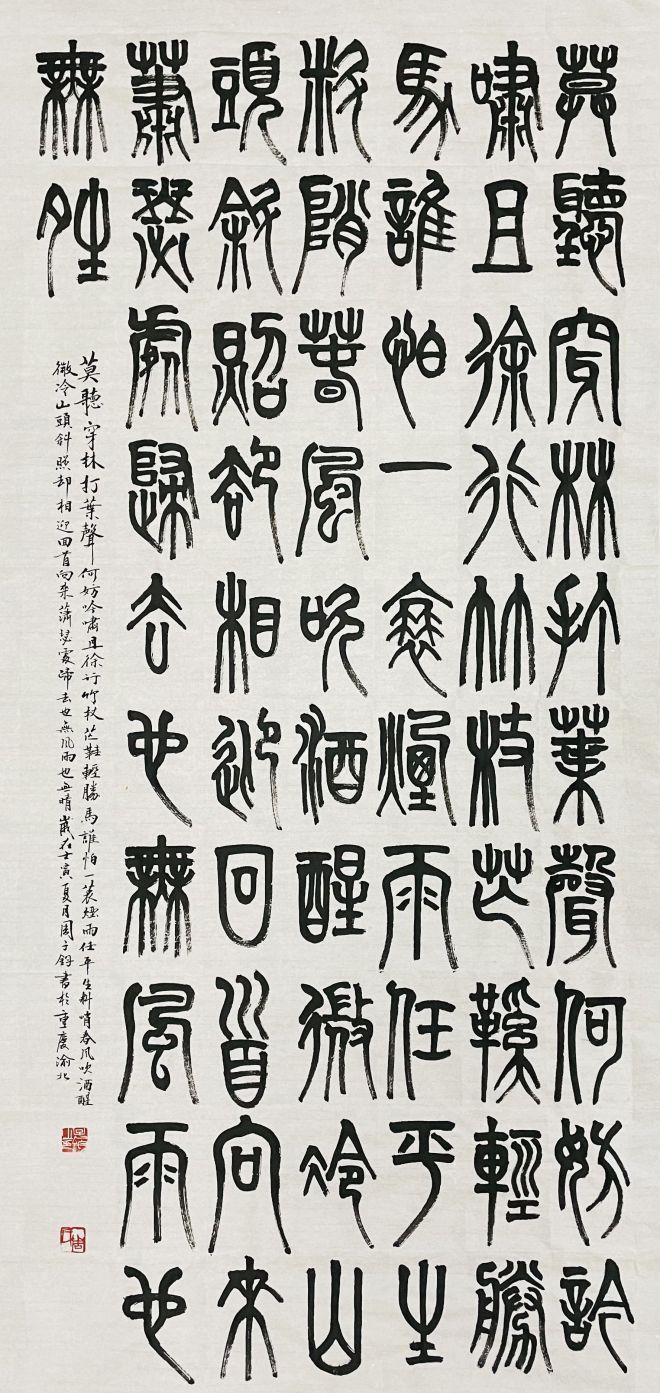 莫聽穿林打葉聲何妨吟
嘯且徐行竹杖芒鞵輕勝
馬誰怕一蓑煙雨任平生
料陗春風吹酒醒微冷山
頭斜照卻相迎回首向來
蕭瑟處歸去也無風雨也
無姓
莫聽穿林打葉聲何妨吟嘯且徐行竹杖芒鞋輕勝馬誰怕一蓑煙雨任平生料哨春風吹酒醒
微冷山頭斜照却相迎回首向来蕭瑟處歸去也無風雨也無晴歲在壬寅夏月周子書於重慶渝北